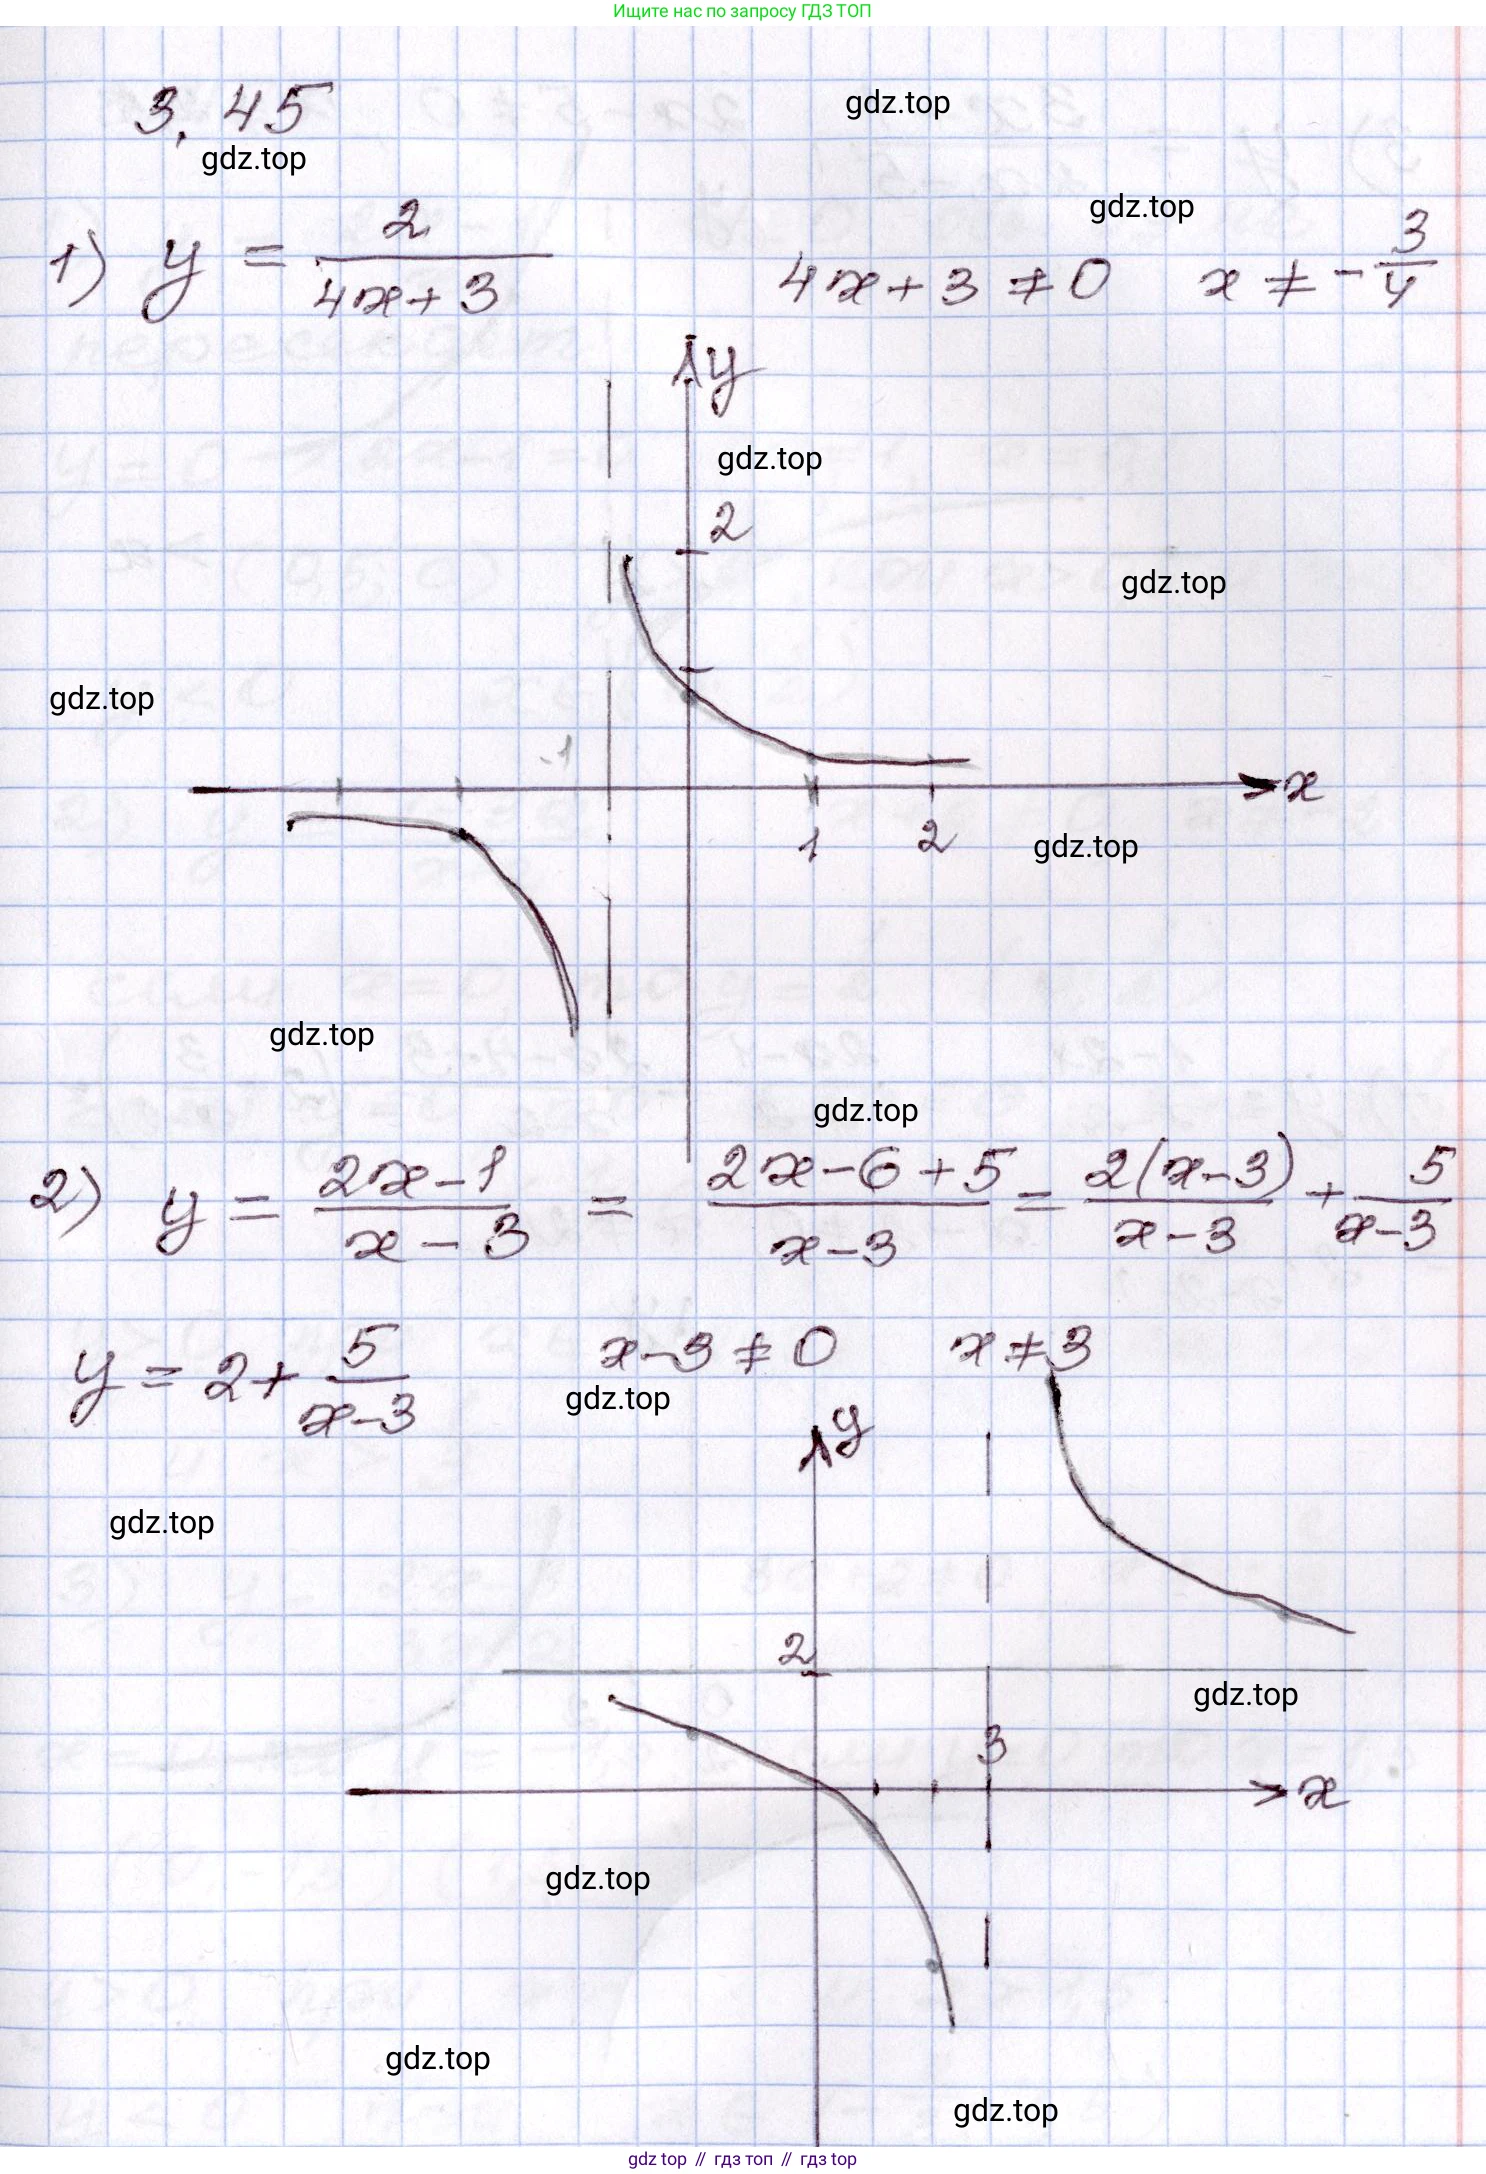 Ищите нас по запросу ГДЗ ТОП
3.45
gdz.top
gdz.top
1) y = 2/(4x+3)   4x+3≠0   x≠-3/4
gdz.top
y
gdz.top
2
gdz.top
gdz.top
-1
x
1 2
gdz.top
gdz.top
gdz.top
2) y = (2x-1)/(x-3) = (2x-6+5)/(x-3) = 2(x-3)/(x-3) + 5/(x-3)
y = 2+5/(x-3)   x-3≠0   x≠3
gdz.top
y
gdz.top
2
gdz.top
3
x
gdz.top
gdz.top
gdz.top
gdz top // гдз топ // гдз top